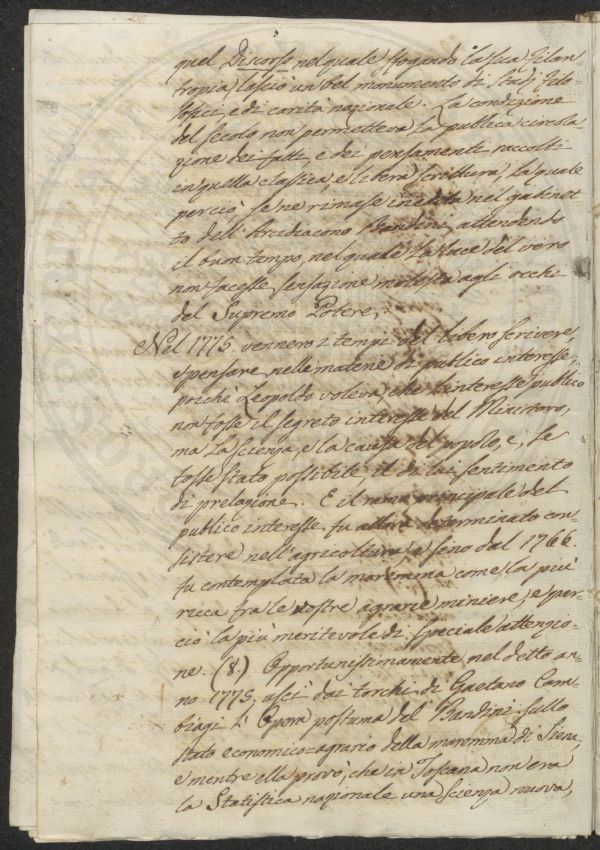 quel Discorso nel quale sfogando la sua filan-
tropia lasciò un bel monumento di studj filo-
sofici, e di carità nazionale. La condizione
del secolo non permetteva la publica circola-
zione dei fatti, e dei pensamenti raccolti
in quella classica, e libera scrittura, la quale
perciò se ne rimase inedita nel gabinet-
to dell'Arcidiacono Bandini, attendendo
il buon tempo, nel quale la luce del vero
non facesse sensazione molesta agli occhi
del Supremo Potere.
Nel 1775. vennero i tempi del libero scrivere,
e pensare nelle materie di publico interesse;
poichè Leopoldo voleva, che l'interesse publico
non fosse il segreto interesse del Ministero,
ma la scienza, e la causa del popolo, e, se
fosse stato possibile, il di lui sentimento
di prelazione. E il ramo principale del
publico interesse fu allora determinato con-
sistere nell'agricoltura, e sino dal 1766.
fu contemplata la maremma come la più
ricca fra le nostre agrarie miniere, e per-
ciò la più meritevole di speciale attenzio-
ne. (8.) Opportunissimamente nel detto an-
no 1775, uscì dai torchi di Gaetano Cam-
biagi l'Opera postuma del Bandini sullo
stato economico-agrario della maremma di Siena,
e mentre ella provò, che in Toscana non era
la Statistica nazionale una scienza nuova,